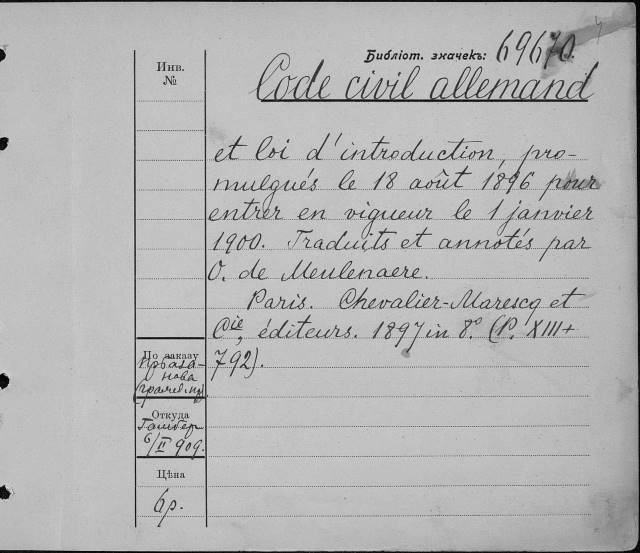 Библiот. значекъ: 69670.
Code civil allemand
et loi d'introduction, pro-
mulgués le 18 août 1896 pour
entrer en vigueur le 1 janvier
1900. Traduits et annotés par
O. de Meulenaere.
Paris. Chevalier-Marescq et
Cie, éditeurs. 1897 in 8º. (P. XIII+
792).
Инв.
№
По заказу
нова
Откуда
6/II 909.
Цѣна
6р.